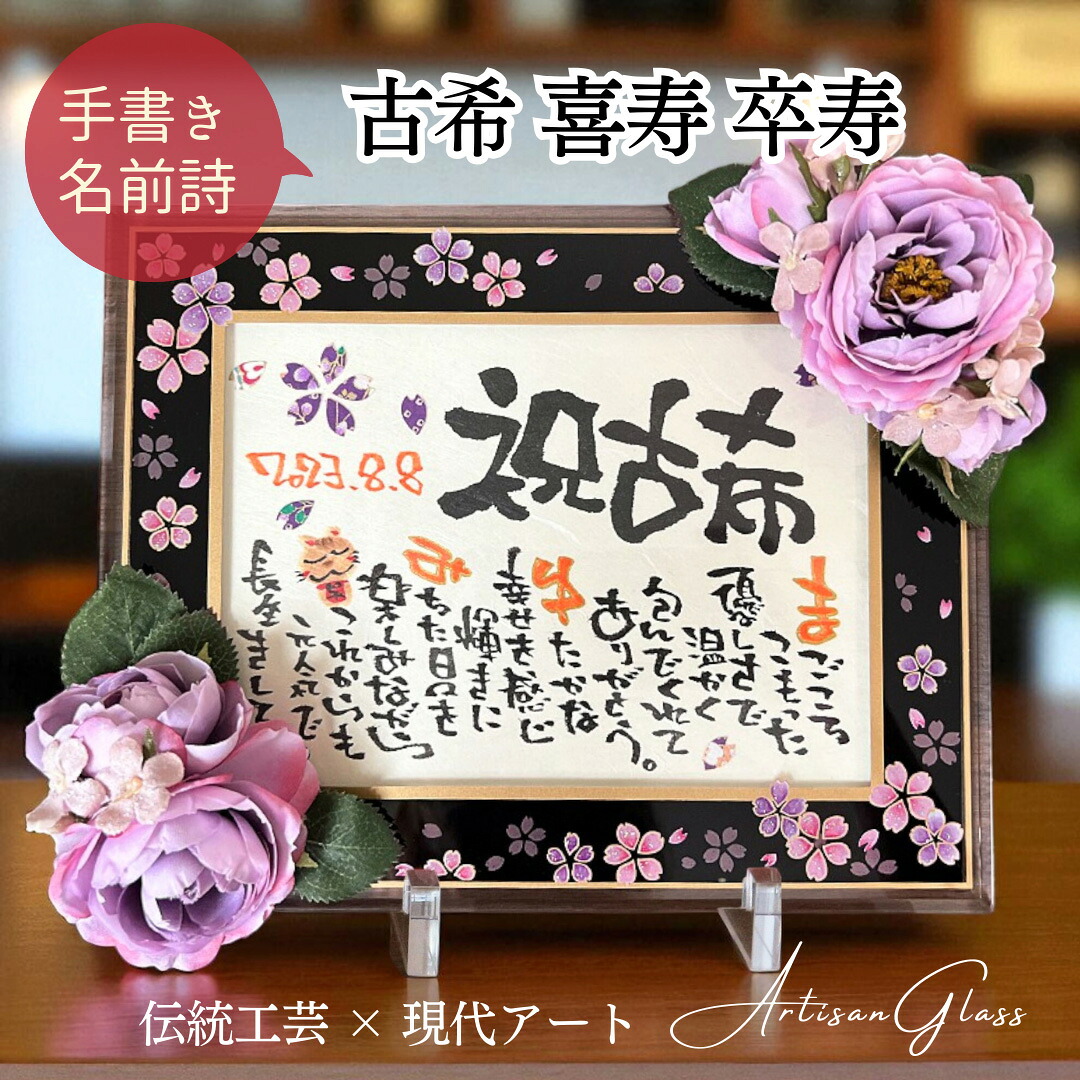 手書き
名前詩
古希 喜寿 卒寿
祝古希
2023.8.8
まごころ
こもった
優しさで
温かく
包んでくれて
ありがとう。
ゆたかな
幸せを感じ
輝きに
みちた日々を
楽しみながら
これからも
元気で
長生きして
伝統工芸 × 現代アート
ArtisanGlass